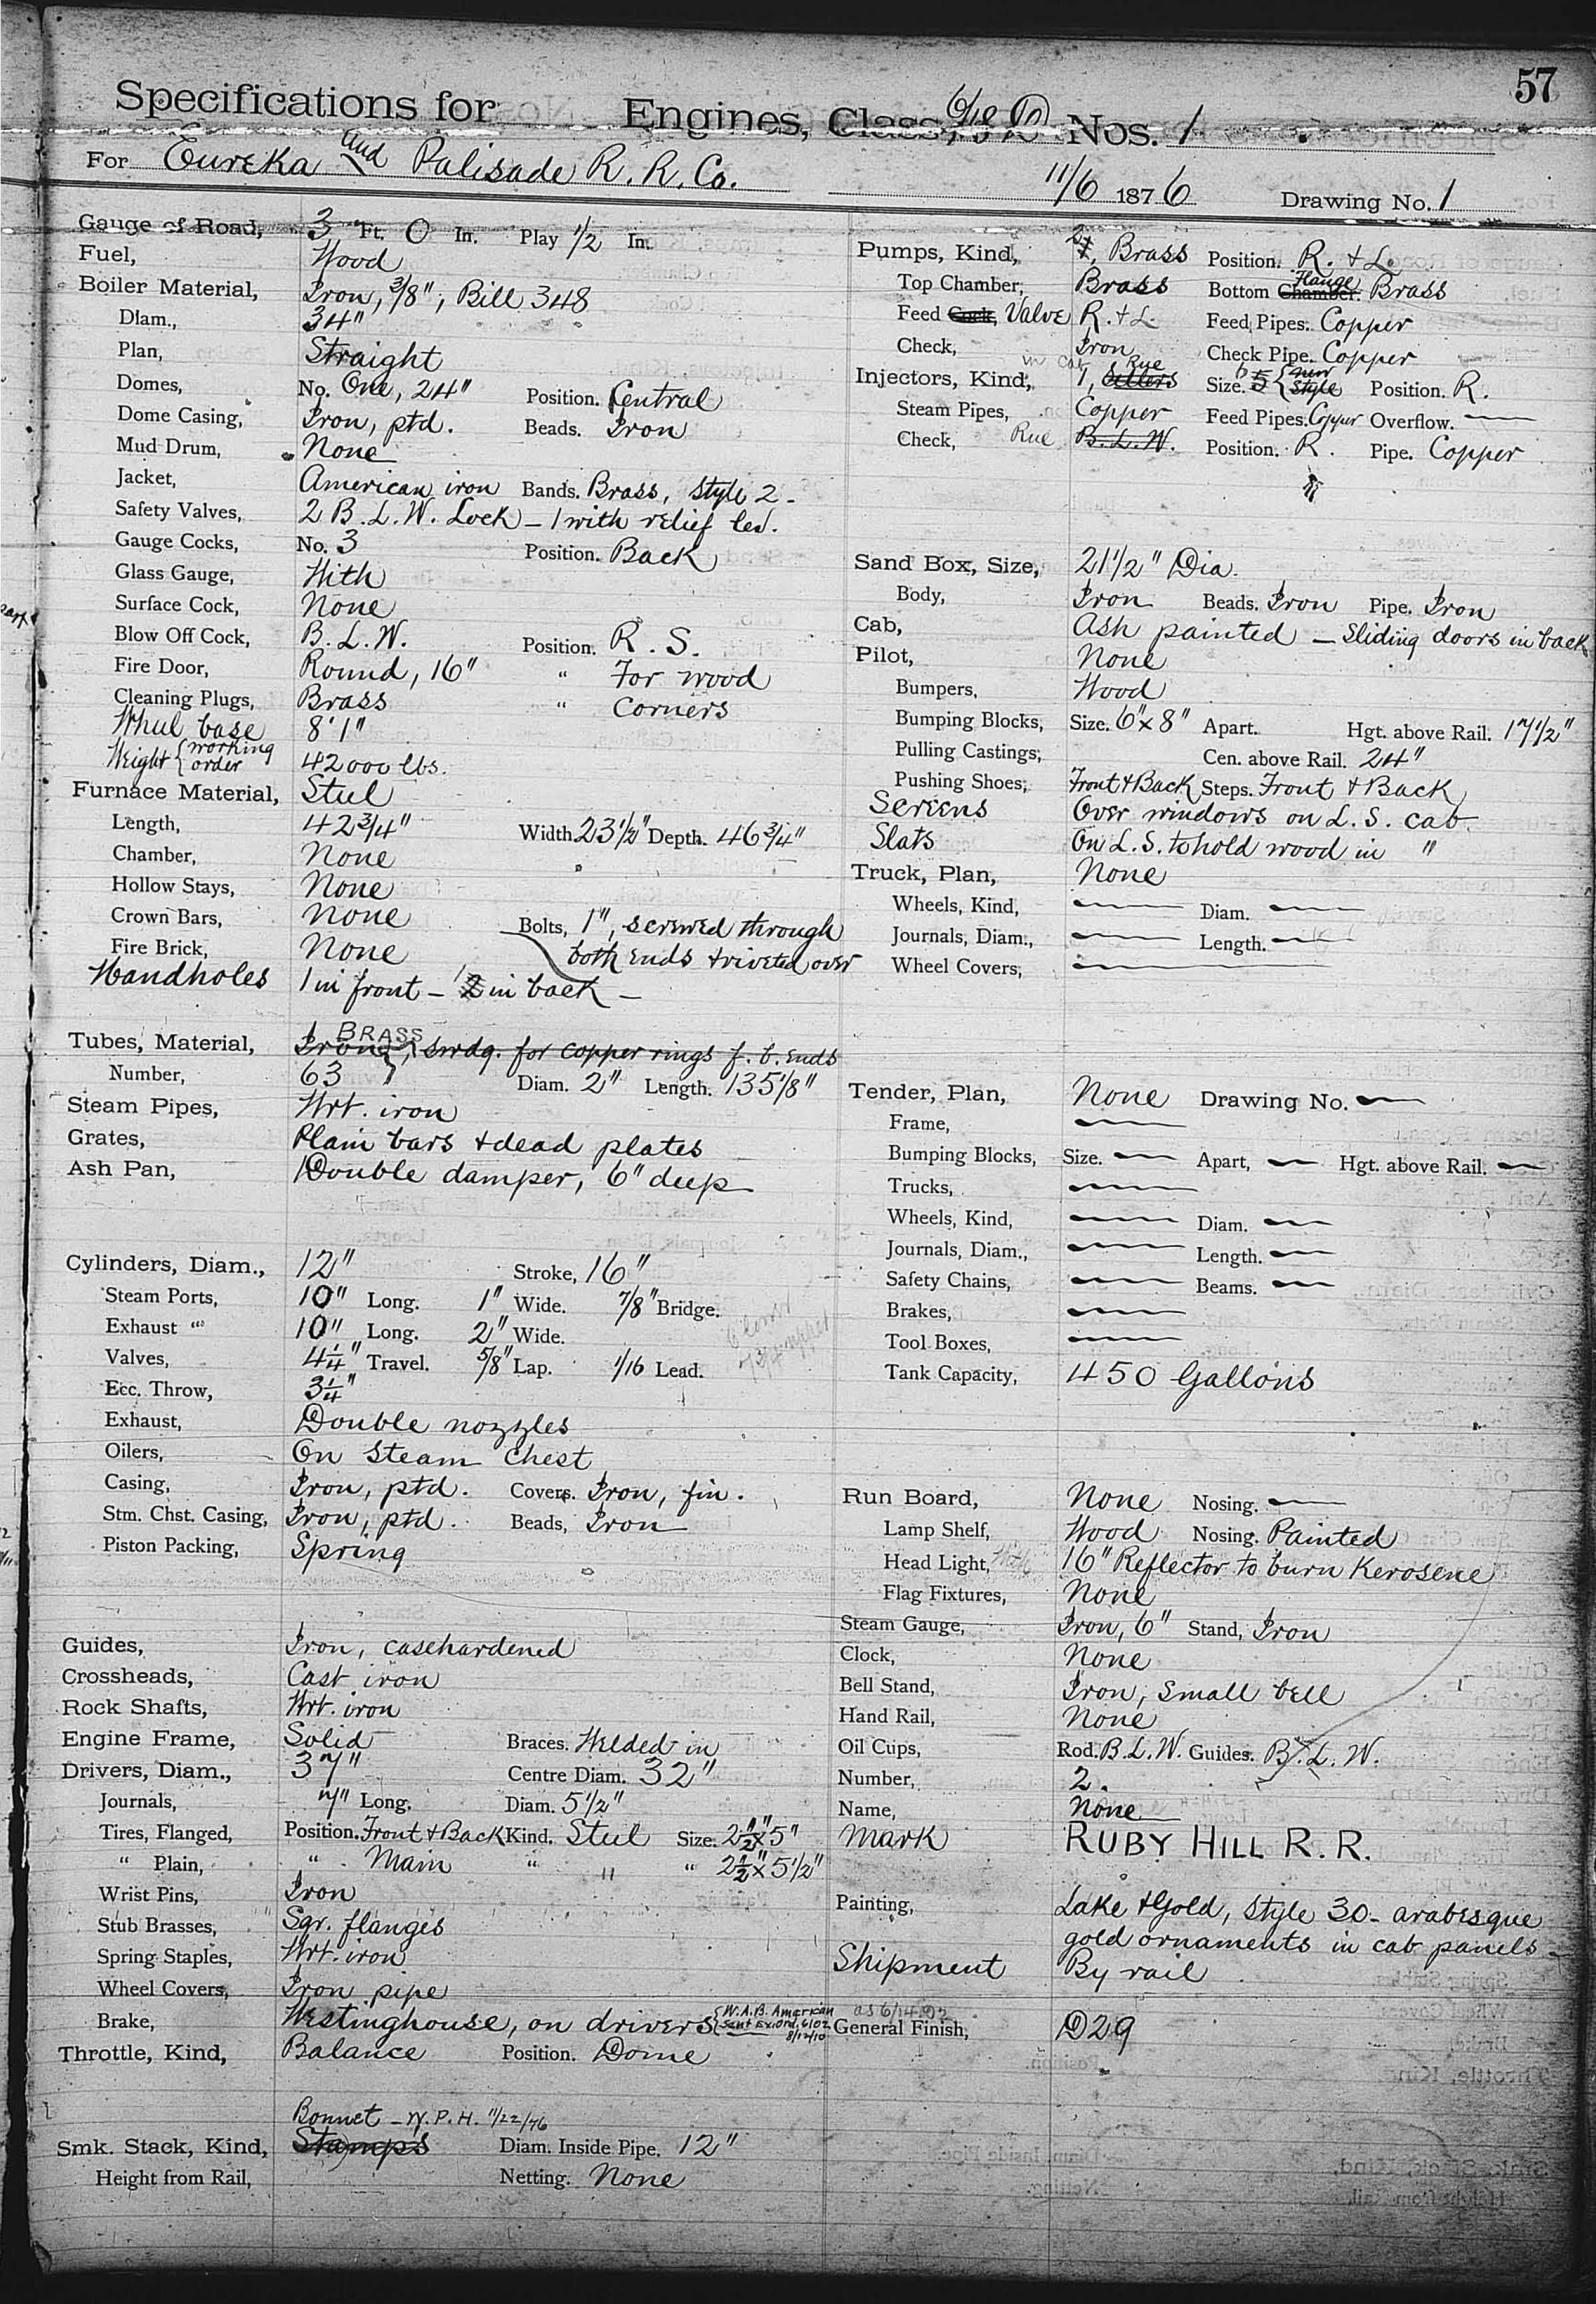 57
Specifications for Engines, Class, 6/18 D Nos. 1
For Eureka and Palisade R. R. Co. 11/6 1876 Drawing No. 1
Gauge of Road, 3 Ft. 0 In. Play 1/2 In.
Fuel, Wood
Boiler Material, Iron, 3/8", Bill 348
Diam., 34"
Plan, Straight
Domes, No. One, 24" Position. Central
Dome Casing, Iron, ptd. Beads. Iron
Mud Drum, None
Jacket, American iron Bands. Brass, style 2 -
Safety Valves, 2 B. L. W. Lock - 1 with relief lev.
Gauge Cocks, No. 3 Position. Back
Glass Gauge, With
Surface Cock, None
Blow Off Cock, B. L. W. Position. R. S.
Fire Door, Round, 16" " For wood
Cleaning Plugs, Brass " Corners
Wheel base 8' 1"
Weight { working order 42000 lbs.
Furnace Material, Steel
Length, 42 3/4" Width 23 1/2" Depth. 46 3/4"
Chamber, None
Hollow Stays, None
Crown Bars, None Bolts, 1", screwed through
both ends & riveted over
Fire Brick, None
Handholes 1 in front - 1 2 in back -
BRASS
Tubes, Material, Iron, swdg. for copper rings f. b. ends
Number, 63 Diam. 2" Length. 135 1/8"
Steam Pipes, Wrt. iron
Grates, Plain bars & dead plates
Ash Pan, Double damper, 6" deep
Cylinders, Diam., 12" Stroke, 16"
Steam Ports, 10" Long. 1" Wide. 7/8" Bridge.
Exhaust " 10" Long. 2" Wide.
Valves, 4 1/4" Travel. 5/8" Lap. 1/16 Lead.
Ecc. Throw, 3 1/4"
Exhaust, Double nozzles
Oilers, On Steam Chest
Casing, Iron, ptd. Covers. Iron, fin.
Stm. Chst. Casing, Iron, ptd. Beads, Iron
Piston Packing, Spring
Guides, Iron, casehardened
Crossheads, Cast iron
Rock Shafts, Wrt. iron
Engine Frame, Solid Braces. Welded in
Drivers, Diam., 37" Centre Diam. 32"
Journals, 7" Long. Diam. 5 1/2"
Tires, Flanged, Position. Front & Back Kind. Steel Size. 2 1/2" x 5"
" Plain, " Main " " " 2 1/2" x 5 1/2"
Wrist Pins, Iron
Stub Brasses, Sqr. flanges
Spring Staples, Wrt. iron
Wheel Covers, Iron pipe
Brake, Westinghouse, on drivers { W.A.B. American sent Ex Ord. 6102 8/12/10
Throttle, Kind, Balance Position. Dome
Bonnet - W. P. H. 11/22/76
Smk. Stack, Kind, Stamps Diam. Inside Pipe. 12"
Height from Rail, Netting. None
Pumps, Kind, 2 1, Brass Position. R. & L.
Top Chamber, Brass Bottom Chamber. Flange Brass
Feed Cock, Valve R. & L. Feed Pipes. Copper
Check, Iron Check Pipe. Copper
in cab Rue
Injectors, Kind, 1, Sellers Size. 6 5 { new Style Position. R.
Steam Pipes, Copper Feed Pipes. Copper Overflow.
Check, Rue B. L. W. Position. R. Pipe. Copper
Sand Box, Size, 21 1/2" Dia.
Body, Iron Beads. Iron Pipe. Iron
Cab, Ash painted - Sliding doors in back
Pilot, None
Bumpers, Wood
Bumping Blocks, Size. 6" x 8" Apart. Hgt. above Rail. 17 1/2"
Pulling Castings, Cen. above Rail. 24"
Pushing Shoes, Front & Back Steps. Front & Back
Screens Over windows on L. S. cab
Slats On L. S. to hold wood in "
Truck, Plan, None
Wheels, Kind, Diam.
Journals, Diam., Length.
Wheel Covers,
Tender, Plan, None Drawing No.
Frame,
Bumping Blocks, Size. Apart, Hgt. above Rail.
Trucks,
Wheels, Kind, Diam.
Journals, Diam., Length.
Safety Chains, Beams.
Brakes,
Tool Boxes,
Tank Capacity, 450 Gallons
Run Board, None Nosing.
Lamp Shelf, Wood Nosing. Painted
Head Light, With 16" Reflector to burn Kerosene
Flag Fixtures, None
Steam Gauge, Iron, 6" Stand, Iron
Clock, None
Bell Stand, Iron, Small bell
Hand Rail, None
Oil Cups, Rod. B. L. W. Guides. B. L. W.
Number, 2.
Name, None
Mark RUBY HILL R. R.
Painting, Lake & Gold, style 30 - arabesque
gold ornaments in cab panels -
Shipment By rail
as 6/14 D2
General Finish, D29